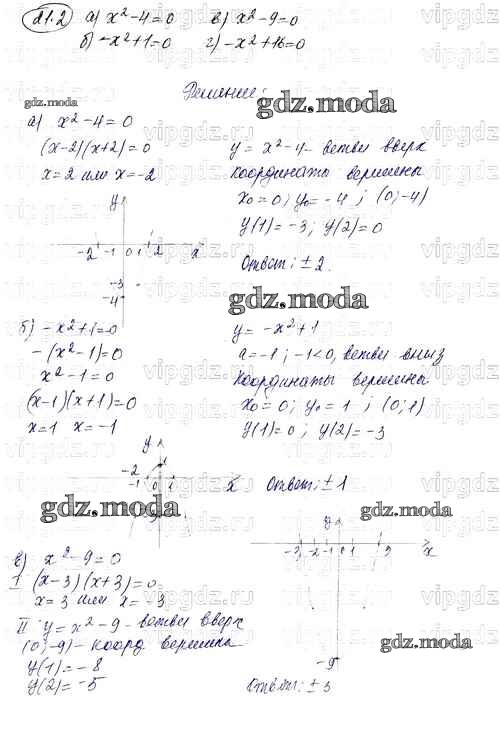 21.2 а) x²-4=0 в) x²-9=0
б) -x²+1=0 г) -x²+16=0
Решение:
gdz.moda
а) x²-4=0
(x-2)(x+2)=0
x=2 или x=-2
y = x²-4 - ветви вверх
координаты вершины
x₀=0; y₀=-4; (0;-4)
y(1)=-3; y(2)=0
Ответ: ±2.
y
-2 -1 0 1 2 x
-3
-4
gdz.moda
б) -x²+1=0
-(x²-1)=0
x²-1=0
(x-1)(x+1)=0
x=1 x=-1
y = -x²+1
a=-1; -1<0, ветви вниз
координаты вершины
x₀=0; y₀=1; (0;1)
y(1)=0; y(2)=-3
Ответ: ±1
y
-2 1
-1 0 1 x
gdz.moda
gdz.moda
в) x²-9=0
I (x-3)(x+3)=0
x=3 или x=-3
II y=x²-9 - ветви вверх
(0;-9) - коорд вершина
y(1)=-8
y(2)=-5
y
-3 -2 -1 0 1 3 x
-9
gdz.moda
Ответ: ±3
vipgdz.ru